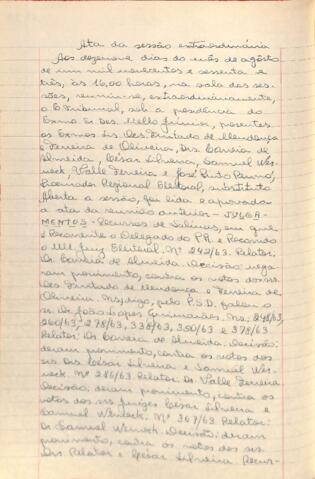 Ata da sessão extraordinária
Aos dezenove dias do mês de agôsto
de um mil novecentos e sessenta e
três, às 16,00 horas, na sala das ses-
sões, reuniu-se, extraordinariamente,
o Tribunal, sob a presidência do
Exmo Sr. Des. Mello Júnior, presentes
os Exmos Srs. Des. Furtado de Mendonça
e Ferreira de Oliveira, Drs. Corrêia de
Almeida, César Silveira, Samuel Wer-
neck, Valle Ferreira e José Pinto Renno,
Procurador Regional Eleitoral, substituto
Aberta a sessão, foi lida e aprovada
a ata da reunião anterior - JULGA-
MENTOS - Recursos de Salinas, em que
é Recorrente o Delegado do P.R. e Recorrido
o MM. Juiz Eleitoral. Nº 242/63. Relator:
Dr. Corrêia de Almeida. Decisão: nega-
ram provimento, contra os votos dos srs.
Des. Furtado de Mendonça e Ferreira de
Oliveira. Nesta, digo, pelo P.S.D. falou o
sr. Dr. João Lopes Guimarães. Ns. 248/63,
260/63, 278/63, 338/63, 350/63 e 378/63.
Relator: Dr. Corrêia de Almeida. Decisão:
deram provimento, contra os votos dos
srs. Drs. César Silveira e Samuel Wer-
neck. Nº 286/63. Relator: Dr. Valle Ferreira
Decisão: deram provimento, contra os
votos dos srs. juízes César Silveira e
Samuel Werneck. Nº 367/63. Relator:
Dr. Samuel Werneck. Decisão: deram
provimento, contra os votos dos srs.
Drs. Relator e César Silveira. Recur-